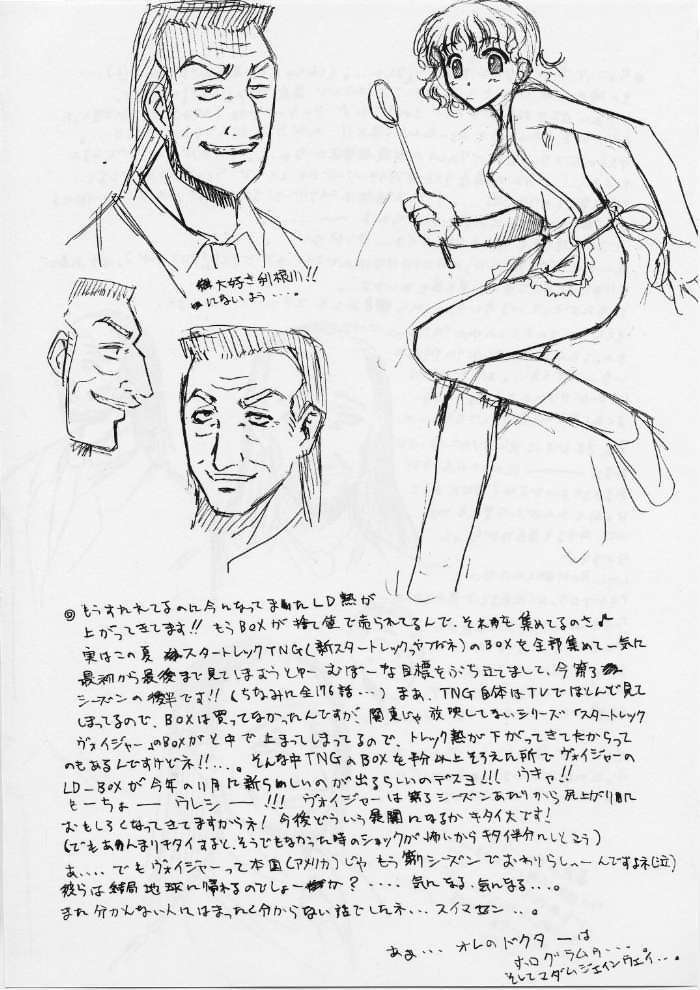 大好き利根川!!
にないよう...
◎もうすたれてるのに今になってまたLD熱が
上がってきてます!! もうBOXが捨て値で売られてるんで、それを集めてるのさ♪
実はこの夏 スタートレックTNG(新スタートレックってやつがネ)のBOXを全部集めて一気に
最初から最後まで見てしまおうとゆーむぼーな目標をぶち立てまして、今第5
シーズンの後半です!!(ちなみに全176話...)まあ、TNG自体はTVでほとんど見て
しまってるので、BOXは買ってなかったんですが、関東じゃ放映してないシリーズ「スタートレック
ヴォイジャー」のBOXがと中で止まってしまってるので、トレック熱が下がってきてたからって
のもあるんですけどネ!!...。そんな中TNGのBOXを半分以上そろえた所でヴォイジャーの
LD-BOXが今年の11月に新らしいのが出るらしいのデスヨ!!! ウキャ!!
とーちょーー ウレシー!!! ヴォイジャーは第3シーズンあたりから尻上がりに
おもしろくなってきてますからネ! 今後どういう展開になるかキタイ大です!
(でもあんまりキタイすると、そうでもなかった時のショックが怖いからキタイ半分にしとこう)
あ....でもヴォイジャーって本国(アメリカ)じゃもう第7シーズンでおわりらしーんですよネ(泣)
彼らは結局地球に帰れるのでしょーか?....気になる、気になる...。
また分かんない人にはまったく分からない話でしたネ...スイマセン...。
あぁ... オレのドクターは
ホログラムゥ....。
そしてマダムジェインウェイ...。